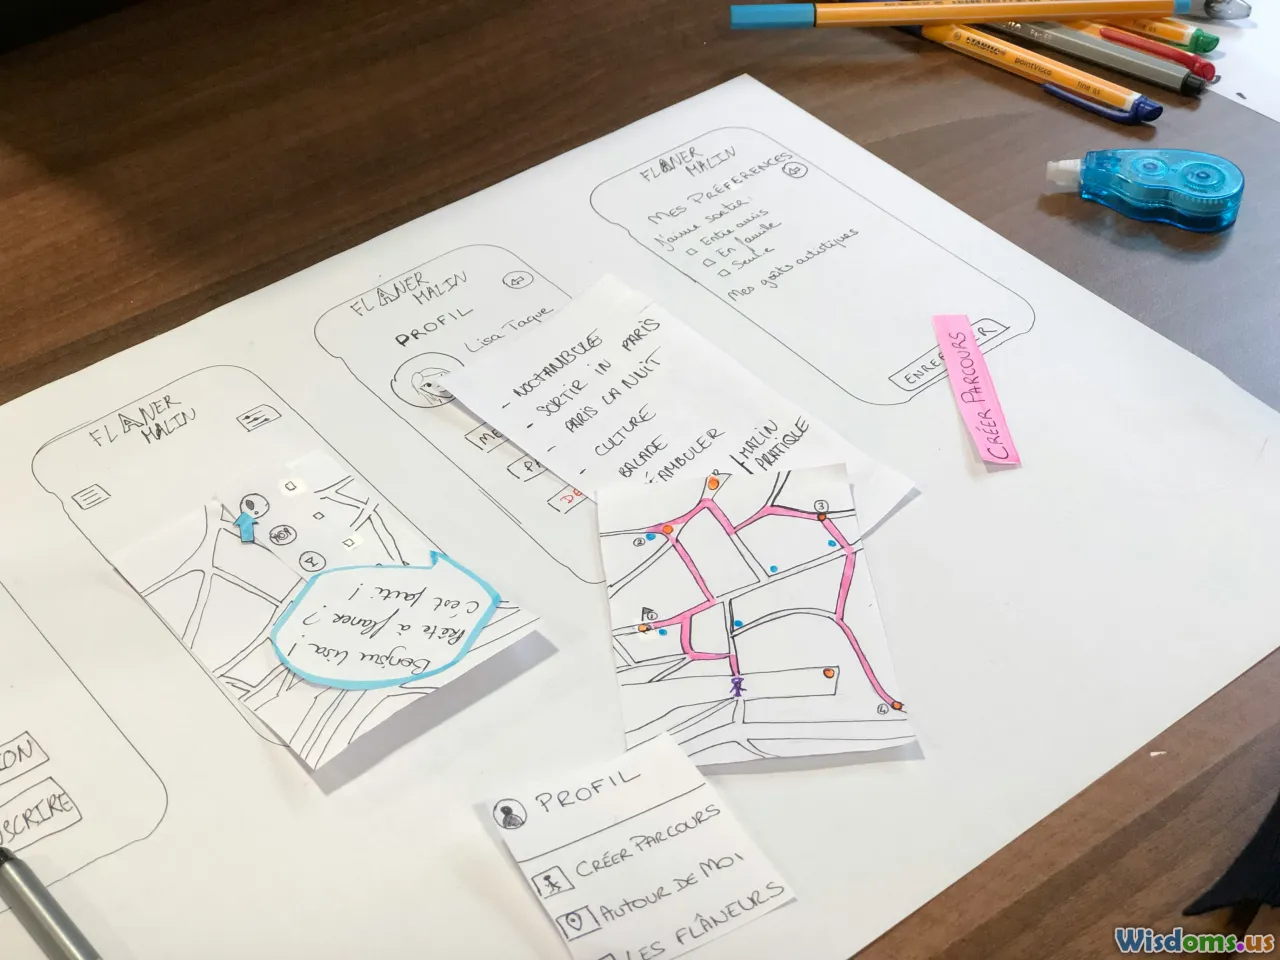 FLÂNER
MALIN
MES PRÉFÉRENCES
J'aime sortir :
Entre amis
En famille
Seul·e
Mes goûts artistiques
CRÉER PARCOURS
FLÂNER
MALIN
PROFIL
Lisa Taque
- NOCTAMBULE
- SORTIR IN PARIS
- PARIS LA NUIT
- CULTURE
BALADE
MALIN
PRATIQUE
FLÂNER
MALIN
Bonjour Lisa !
Prête à flâner ?
C'est parti !
1
2
3
4
PROFIL
CRÉER PARCOURS
AUTOUR DE MOI
LES FLÂNEURS
STABILO
point Visco
Wisdoms.us